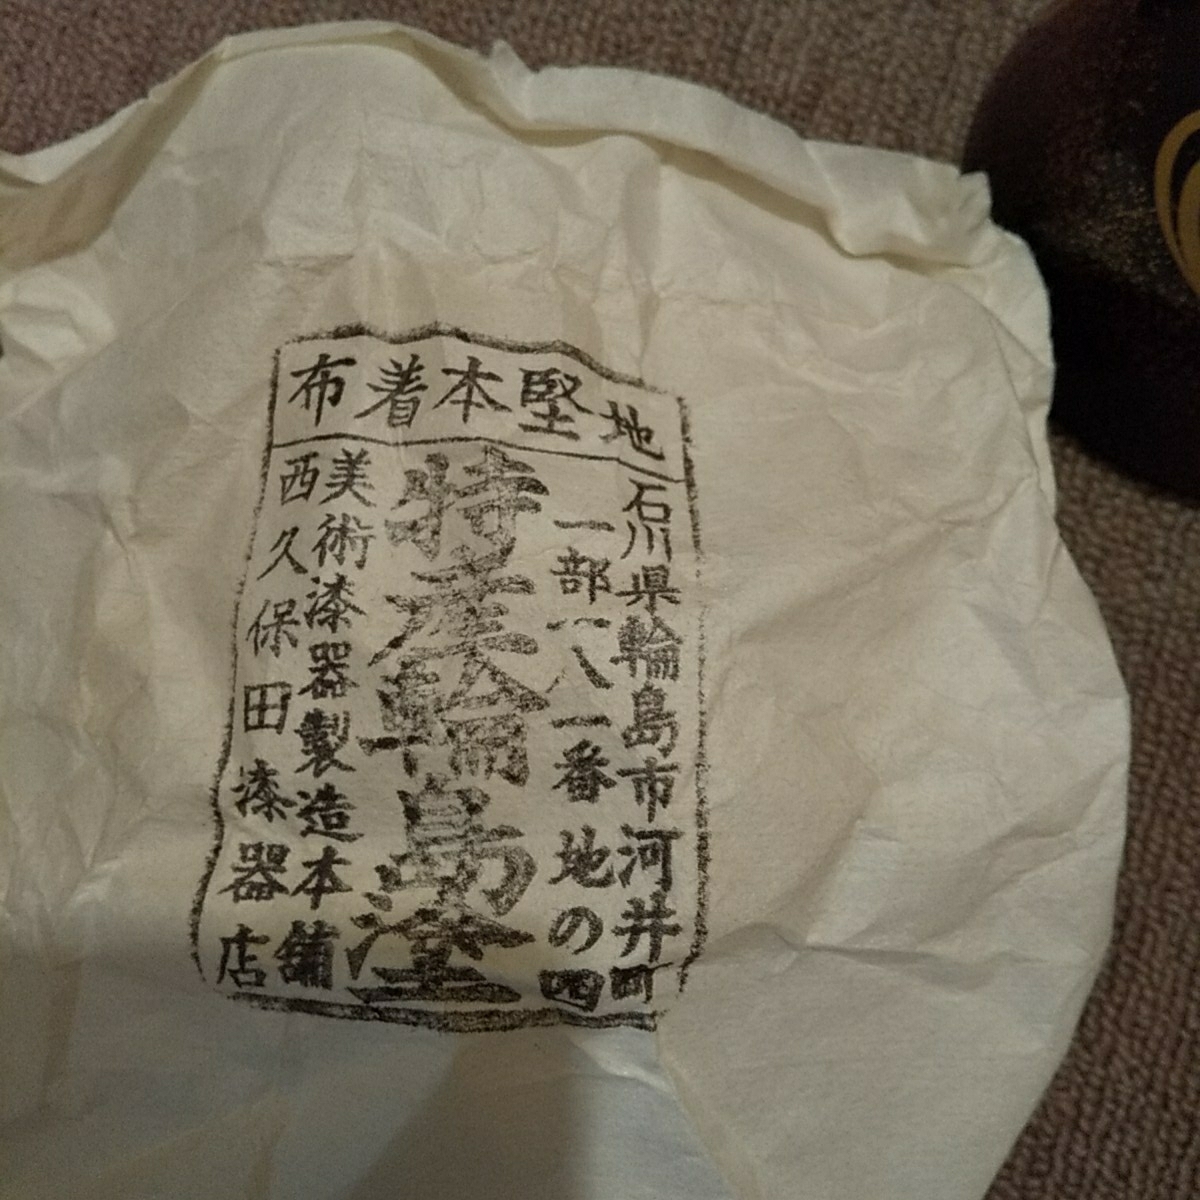 布着本堅地
石川県輪島市河井町
一部一八一番地の四
特産輪島塗
美術漆器製造本舗
西久保田漆器店